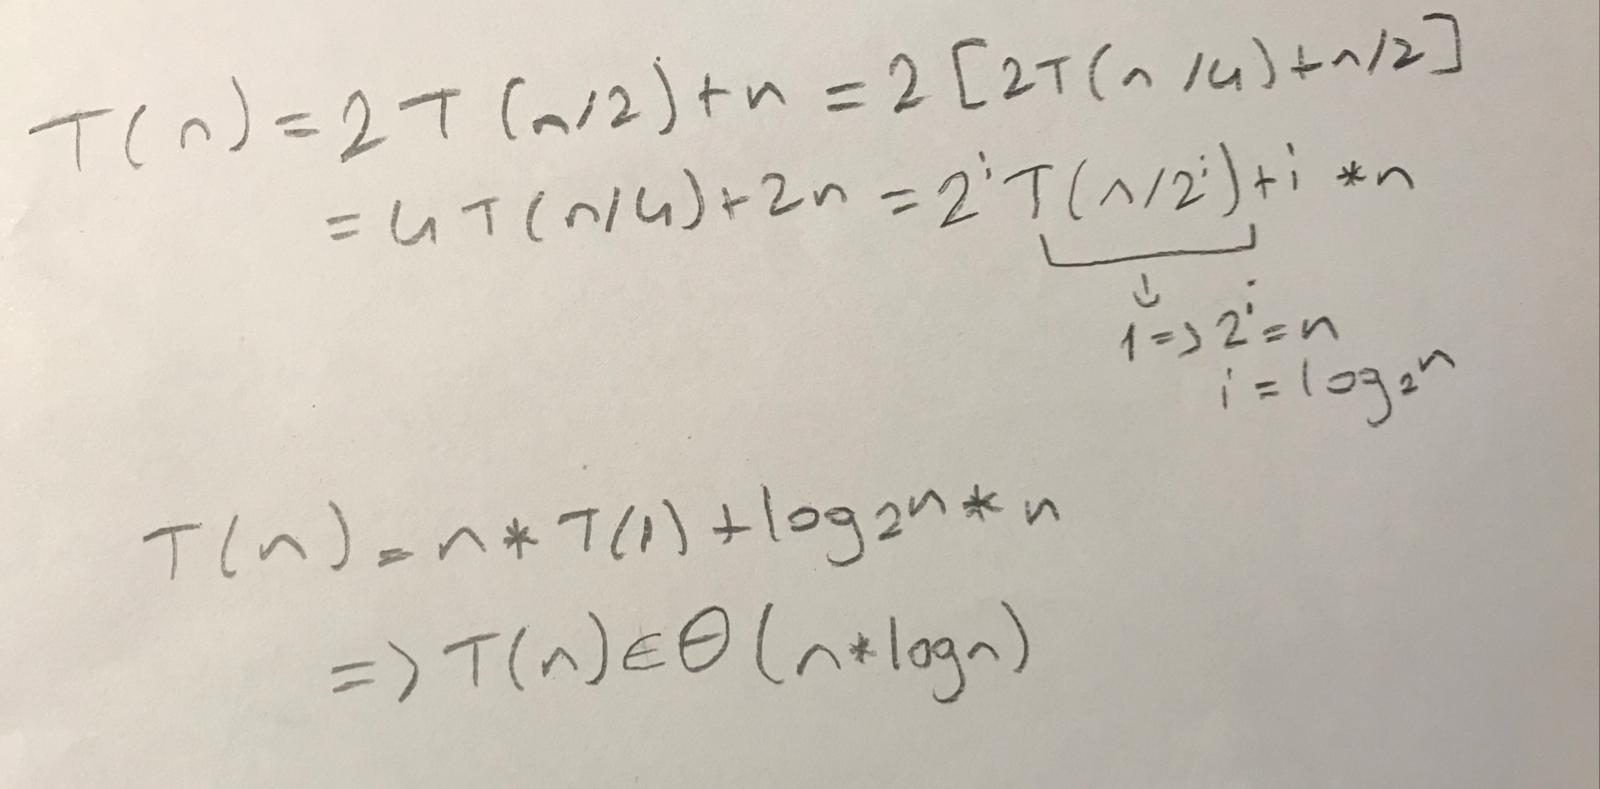 T(n) = 2T(n/2)+n = 2[2T(n/4)+n/2]
= 4T(n/4)+2n = 2^i T(n/2^i)+i*n
↓
1 => 2^i = n
i = log₂n
T(n) = n*T(1)+log₂n*n
=> T(n) ∈ Θ(n*logn)